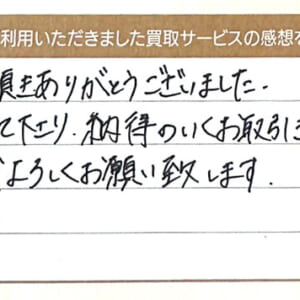 利用いただきました買取サービスの感想を
頂きありがとうございました.
て下さり.納得のいくお取引き
よろしくお願い致します.